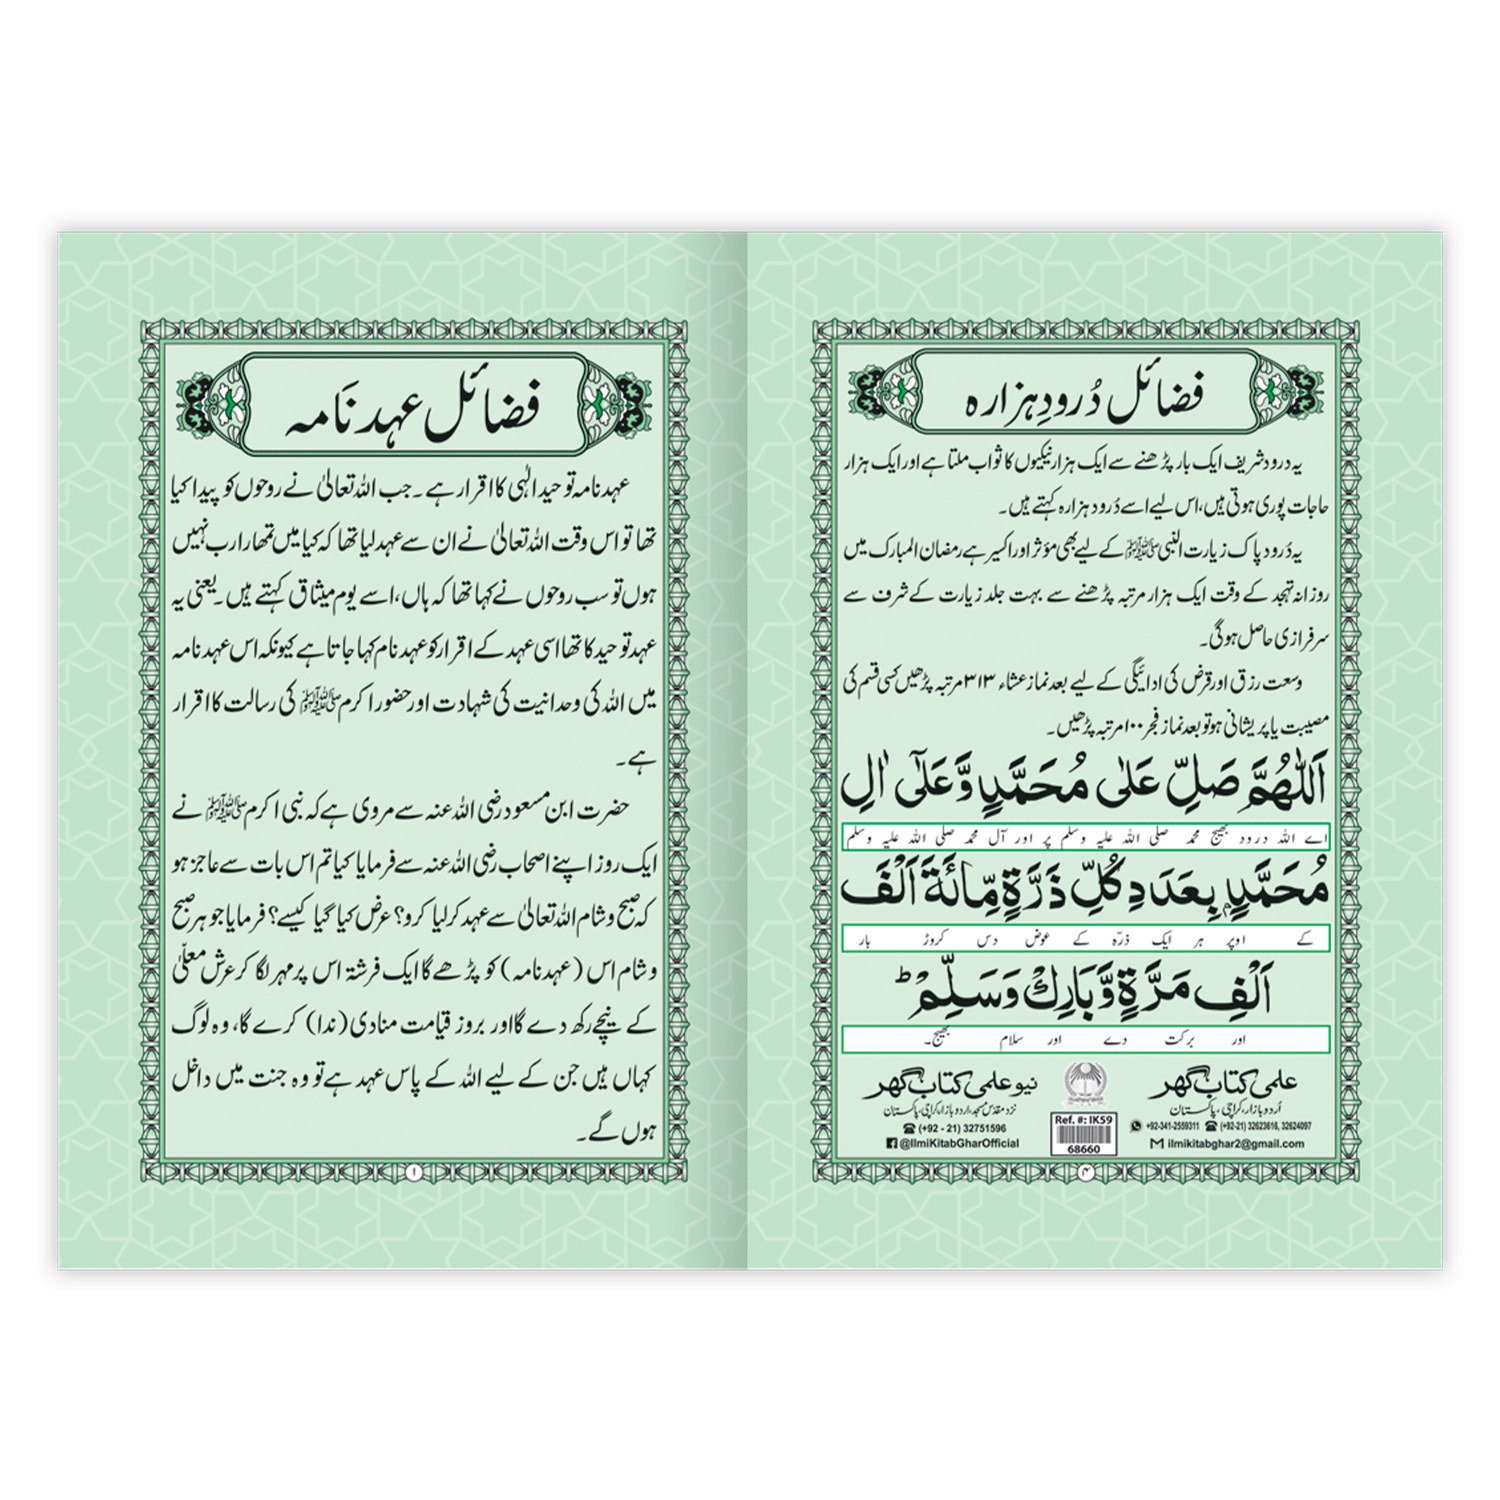 فضائل دُرودِ ہزارہ
یہ درود شریف ایک بار پڑھنے سے ایک ہزار نیکیوں کا ثواب ملتا ہے اور ایک ہزار
حاجات پوری ہوتی ہیں، اس لیے اسے دُرود ہزارہ کہتے ہیں۔
یہ دُرود پاک زیارت النبی ﷺ کے لیے بھی مؤثر اور اکسیر ہے رمضان المبارک میں
روزانہ تہجد کے وقت ایک ہزار مرتبہ پڑھنے سے بہت جلد زیارت کے شرف سے
سرفرازی حاصل ہوگی۔
وسعت رزق اور قرض کی ادائیگی کے لیے بعد نماز عشاء ۳۱۳ مرتبہ پڑھیں کسی قسم کی
مصیبت یا پریشانی ہو تو بعد نماز فجر ۱۰۰ مرتبہ پڑھیں۔
اَللّٰهُمَّ صَلِّ عَلٰى مُحَمَّدٍ وَّعَلٰٓى اٰلِ
اے اللہ درود بھیج محمد صلی اللہ علیہ وسلم پر اور آل محمد صلی اللہ علیہ وسلم
مُحَمَّدٍۢ بِعَدَدِ كُلِّ ذَرَّةٍ مِّائَةَ اَلْفَ
کے اوپر ہر ایک ذرّہ کے عوض دس کروڑ بار
اَلْفِ مَرَّةٍ وَّبَارِكْ وَسَلِّمْ ؕ
اور برکت دے اور سلام بھیج۔
علمی کتاب گھر
اُردو بازار، کراچی، پاکستان
+92-341-2559311 (+92-21) 32623616, 32624097
ilmikitabghar2@gmail.com
نیو علمی کتاب گھر
نزد مقدّس مسجد، اردو بازار، کراچی، پاکستان
(+92 - 21) 32751596
@IlmiKitabGharOfficial
Ref. #: IK59
68660
۴
فضائل عہد نَامہ
عہد نامہ توحید الٰہی کا اقرار ہے۔ جب اللہ تعالیٰ نے روحوں کو پیدا کیا
تھا تو اس وقت اللہ تعالیٰ نے ان سے عہد لیا تھا کہ کیا میں تمھارا رب نہیں
ہوں تو سب روحوں نے کہا تھا کہ ہاں، اسے یوم میثاق کہتے ہیں۔ یعنی یہ
عہد توحید کا تھا اسی عہد کے اقرار کو عہد نام کہا جاتا ہے کیونکہ اس عہد نامہ
میں اللہ کی وحدانیت کی شہادت اور حضور اکرم ﷺ کی رسالت کا اقرار
ہے۔
حضرت ابن مسعود رضی اللہ عنہ سے مروی ہے کہ نبی اکرم ﷺ نے
ایک روز اپنے اصحاب رضی اللہ عنہ سے فرمایا کیا تم اس بات سے عاجز ہو
کہ صبح و شام اللہ تعالیٰ سے عہد کر لیا کرو؟ عرض کیا گیا کیسے؟ فرمایا جو ہر صبح
و شام اس (عہد نامہ) کو پڑھے گا ایک فرشتۃ اس پر مہر لگا کر عرش معلّٰی
کے نیچے رکھ دے گا اور بروز قیامت منادی (ندا) کرے گا، وہ لوگ
کہاں ہیں جن کے لیے اللہ کے پاس عہد ہے تو وہ جنت میں داخل
ہوں گے۔
۱